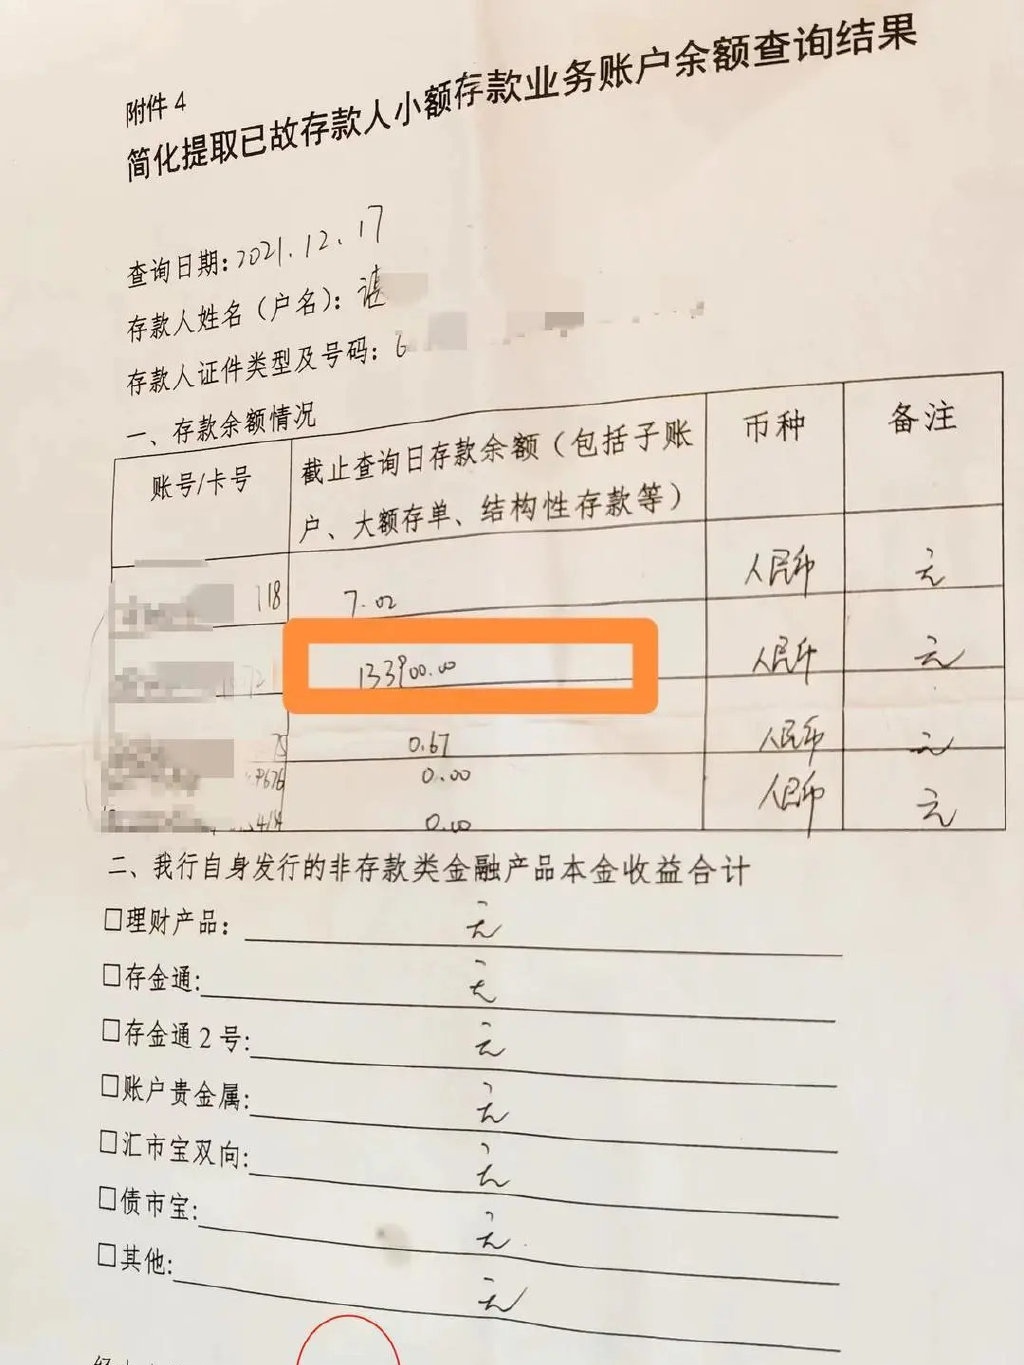 附件 4
简化提取已故存款人小额存款业务账户余额查询结果
查询日期:2021.12.17
存款人姓名（户名）: 谌
存款人证件类型及号码: 6
一、存款余额情况
账号/卡号 截止查询日存款余额（包括子账户、大额存单、结构性存款等） 币种 备注
118 7.02 人民币 元
133900.00 人民币 元
75 0.67 人民币 元
9676 0.00 人民币 元
5414 0.00
二、我行自身发行的非存款类金融产品本金收益合计
□理财产品: 元
□存金通: 元
□存金通 2 号: 元
□账户贵金属: 元
□汇市宝双向: 元
□债市宝: 元
□其他: 元